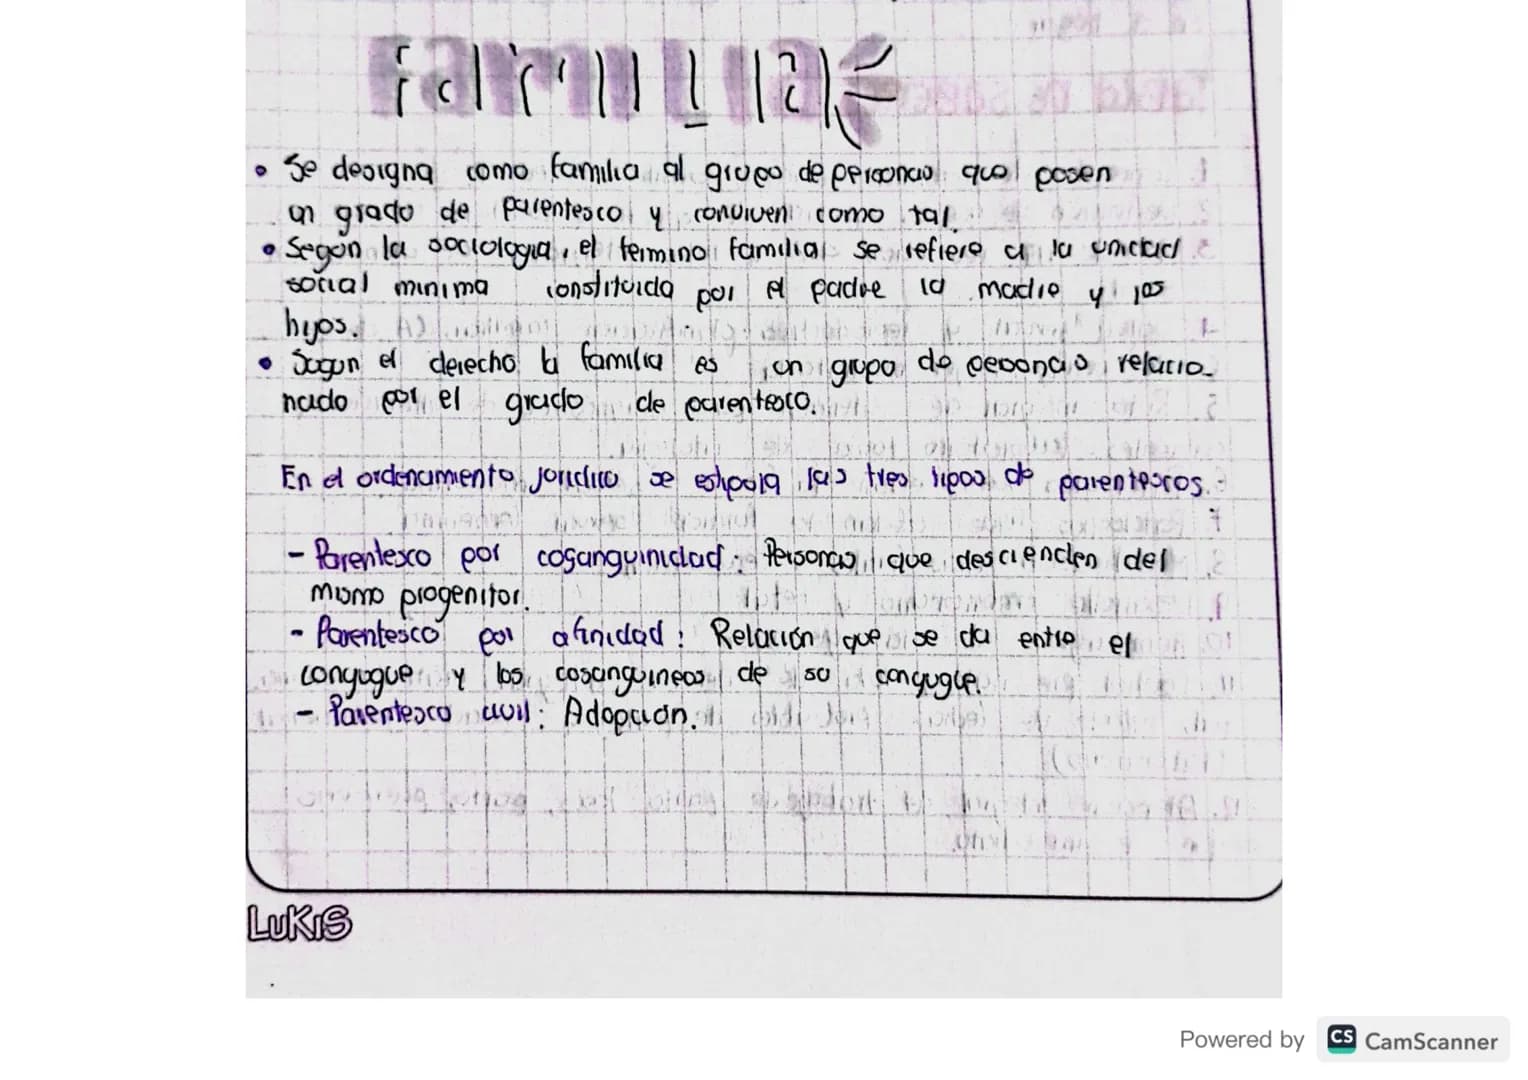 Familia
• Se designa como familia al grupo de personas que posen
un grado de parentesco y conviven como tal.
• Segun la sociologia, el termino familia se refiere a la unidad
social minima constituida por el padre la madre y los
hijos.
• Segun el derecho la familia es un grupo de personas relacio_
nado por el grado de parentesco.
En el ordenamiento juridico se estipula las tres tipos de parentescos.
- Parentesco por cosanguinidad: Personas que descienden del
mismo progenitor.
- Parentesco por afinidad: Relación que se da entre el
conyugue y los cosanguineos de su conyugue.
- Parentesco civil: Adopción.
LUKIS
Powered by CS CamScanner